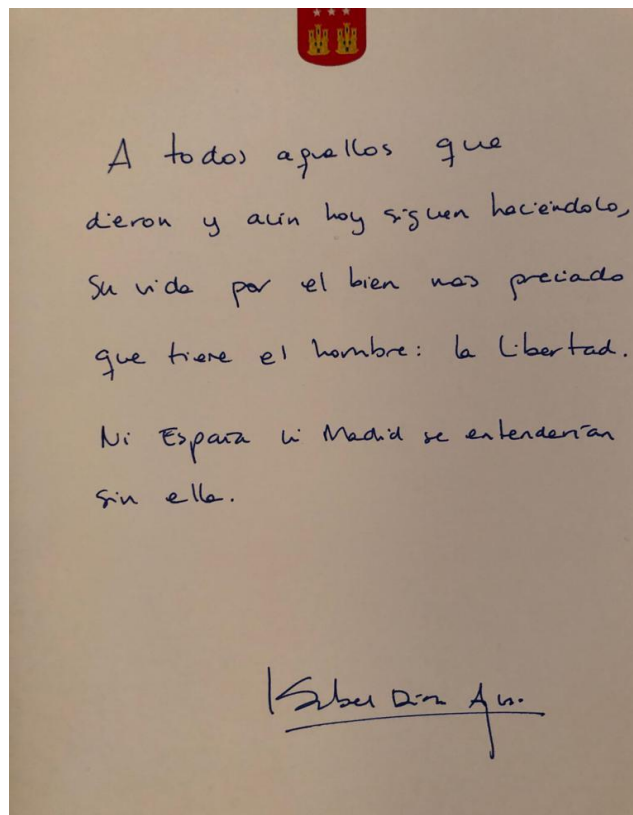 A todos aquellos que
dieron y aún hoy siguen haciéndolo,
Su vida por el bien mas preciado
que tiene el hombre: la Libertad.
Ni España ni Madrid se entenderían
sin ella.
Isabel Díaz Ayuso